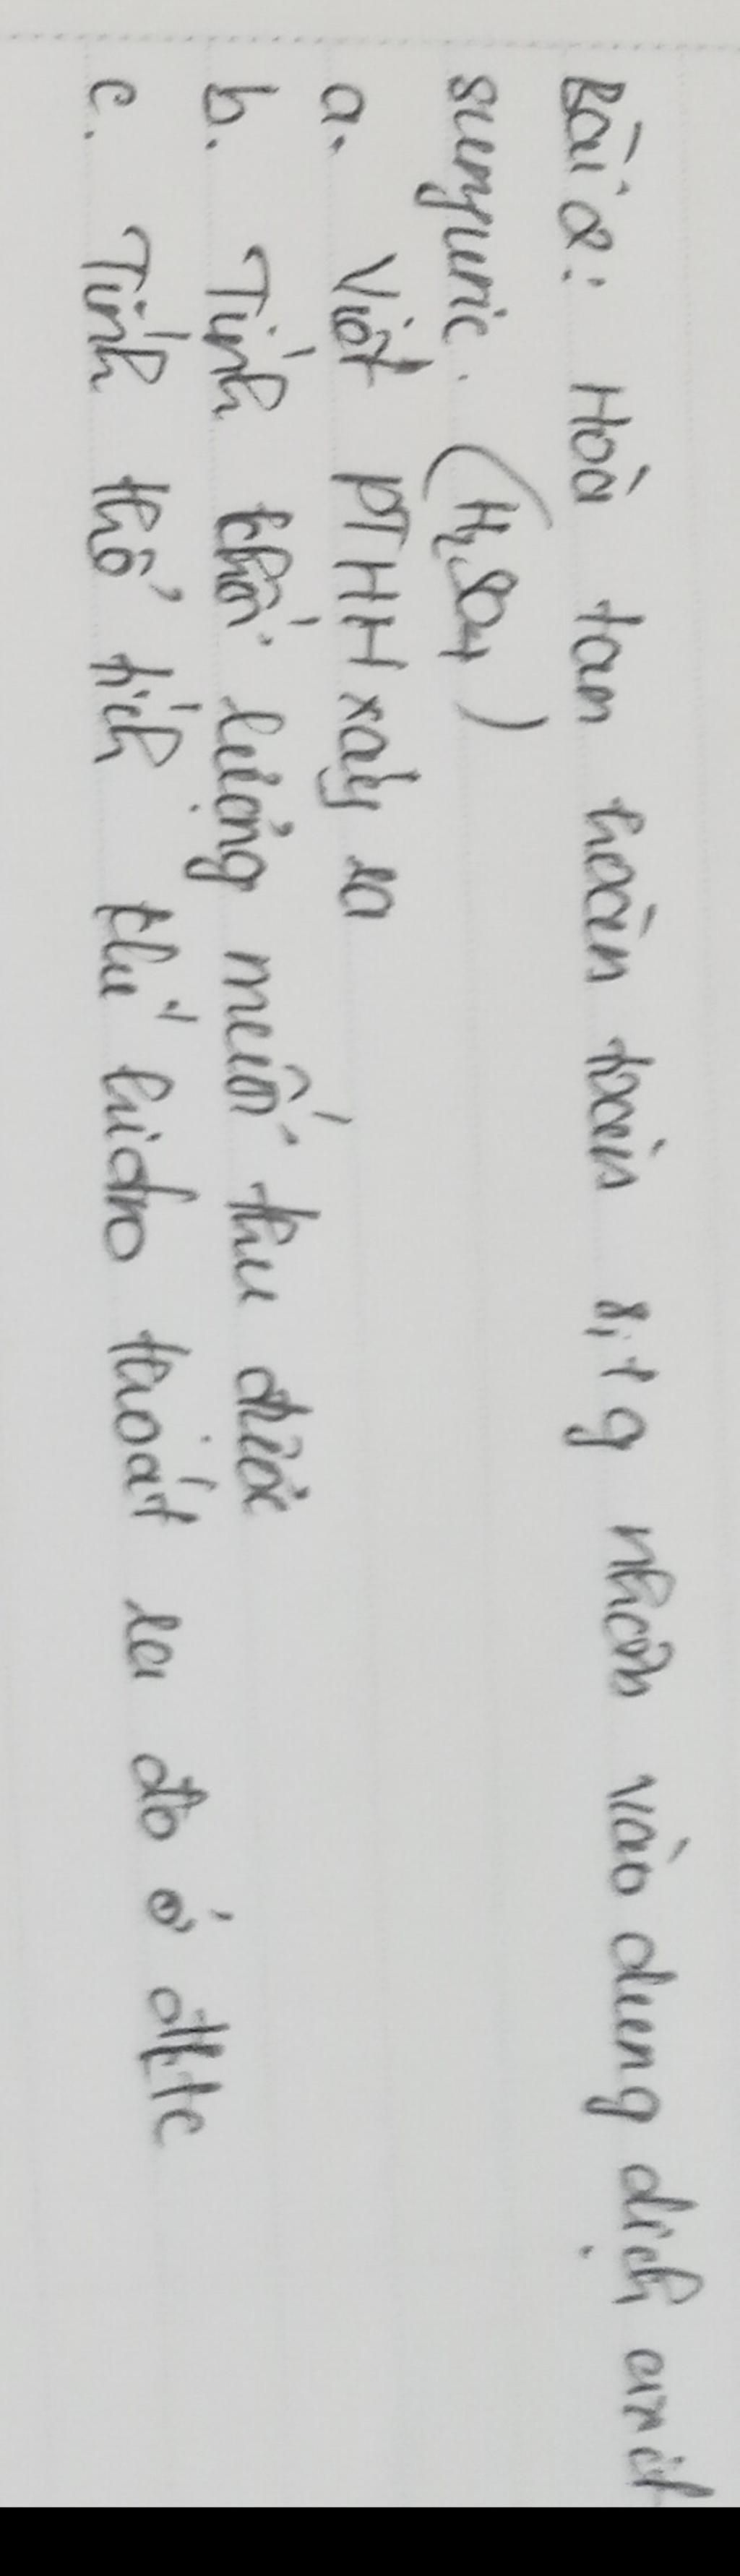 Bài 2: Hoà tan hoàn toàn 8,1g nhôm vào dung dịch axit
sunfuric. (H₂SO₄)
a. Viết PTHH xảy ra
b. Tính khối lượng muối thu được
c. Tính thể tích khí hidro thoát ra đo ở đktc